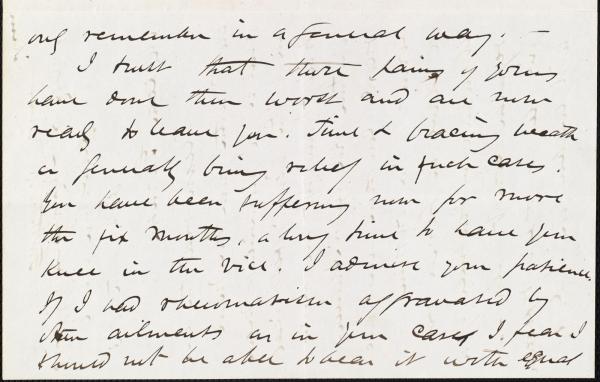 only remember in a general way. —
I trust that those pains of yours
have done their worst and are now
ready to leave you. Time & bracing weath
er generally bring relief in such cases.
You have been suffering now for more
than six months, a long time to have your
knee in the vice. I admire your patience.
If I had rheumatism aggravated by
other ailments as in your case, I fear I
should not be able to bear it with equal